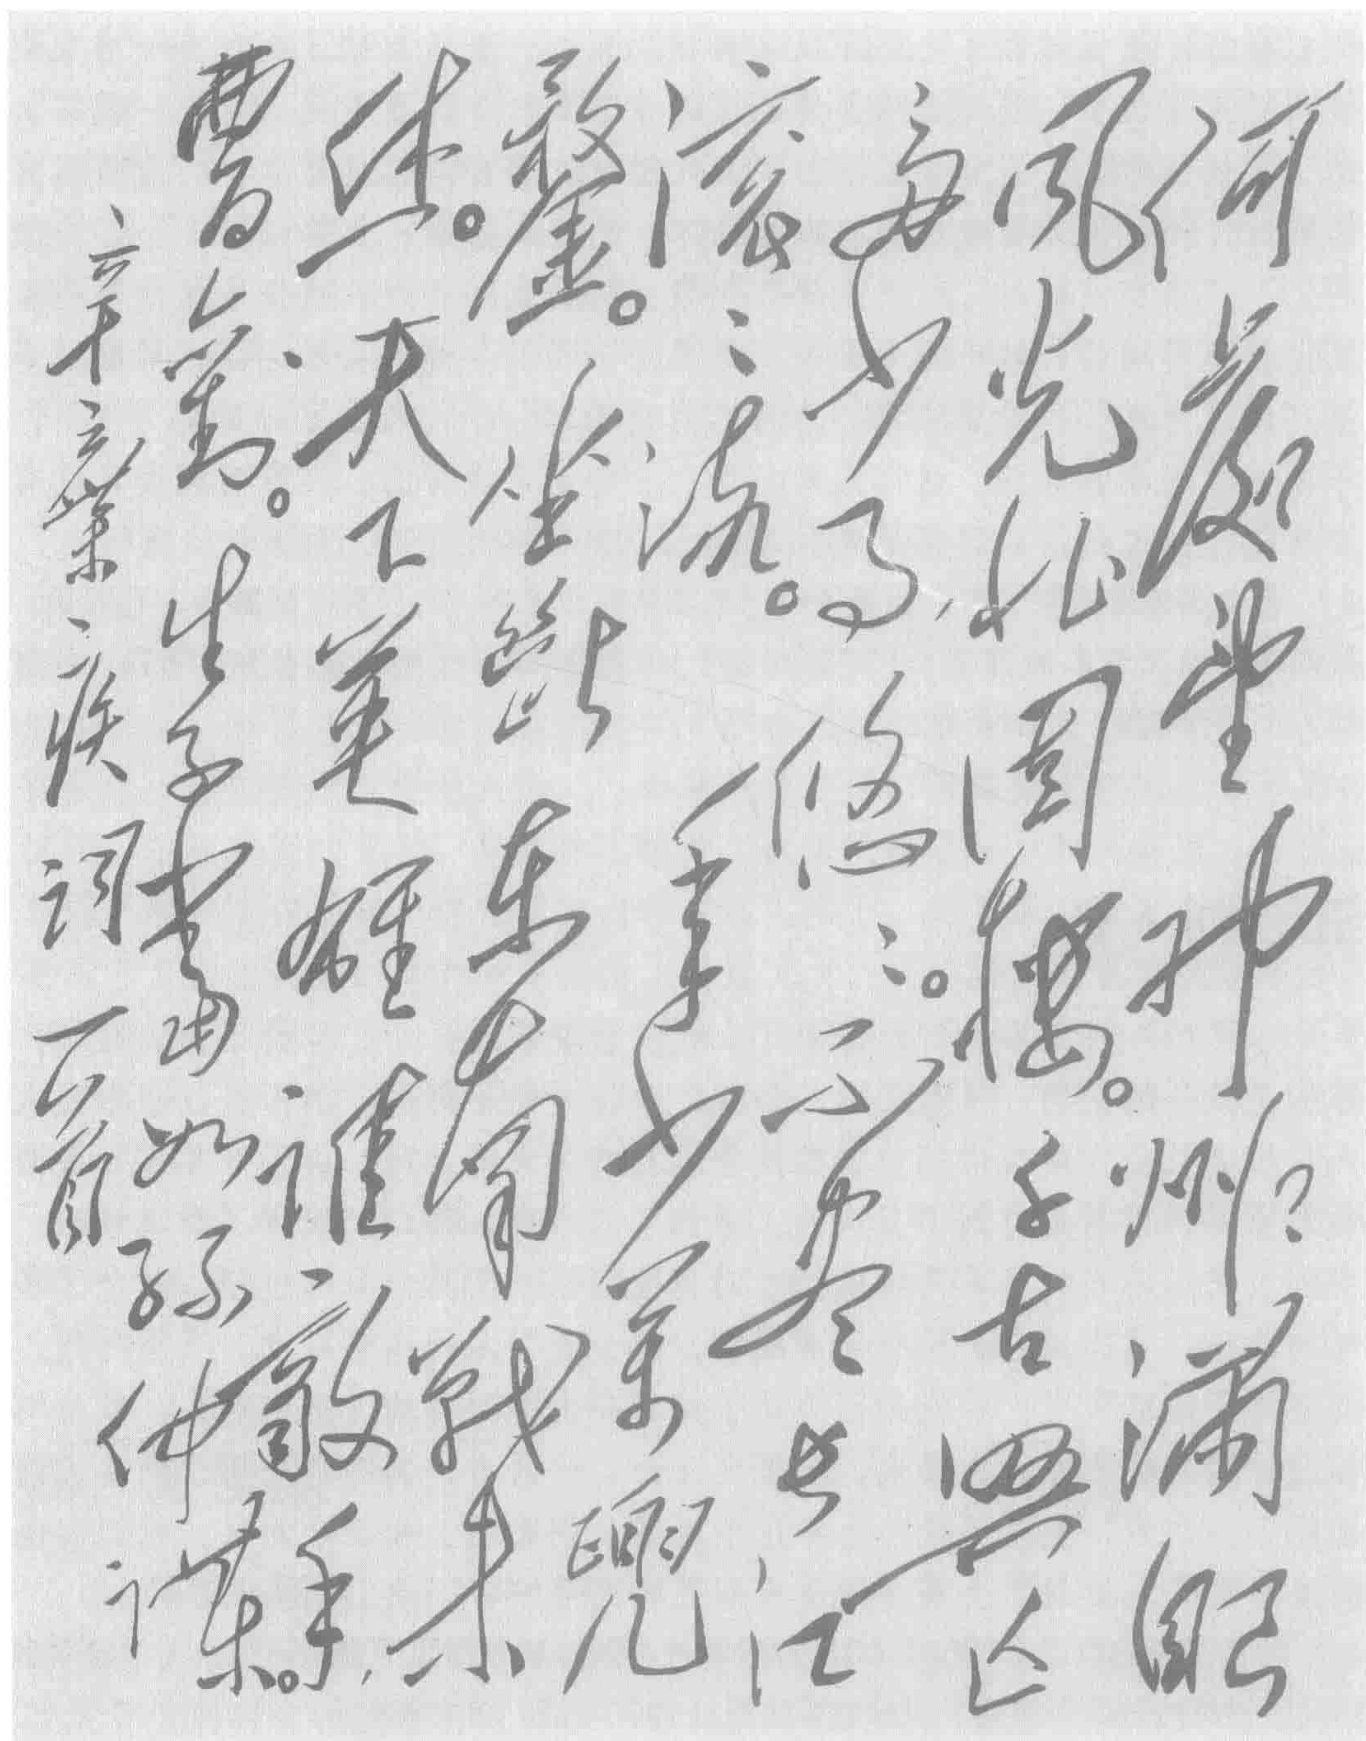 何處望神州?滿眼
風光北固樓。千古興亡
多少事,悠々。不盡長江
滾々流。年少萬兜
鍪。坐斷東南戰未
休。天下英雄誰敵手,
曹劉。生子當如孫仲謀。
辛棄疾詞一首